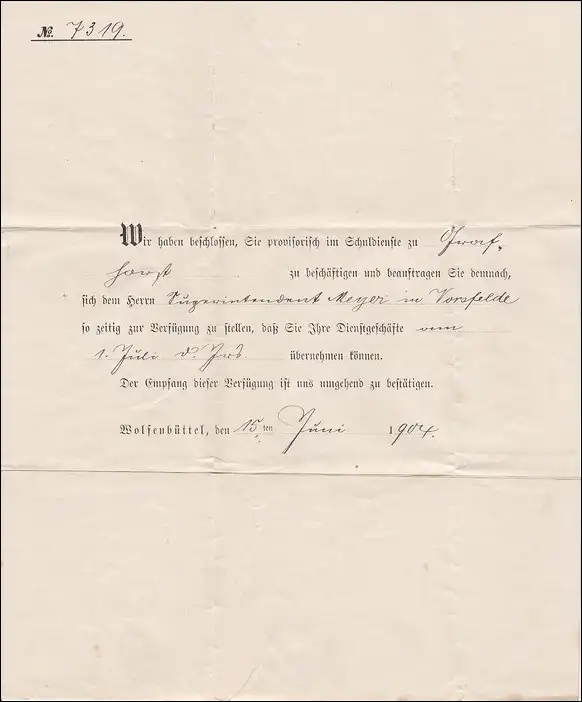 No. 7319.
Wir haben beschlossen, Sie provisorisch im Schuldienste zu Graf-
horst zu beschäftigen und beauftragen Sie demnach,
sich dem Herrn Superintendent Meyer in Vorsfelde
so zeitig zur Verfügung zu stellen, daß Sie Ihre Dienstgeschäfte vom
1. Juli d. Jrs. übernehmen können.
Der Empfang dieser Verfügung ist uns umgehend zu bestätigen.
Wolfenbüttel, den 15.ten Juni 1904.